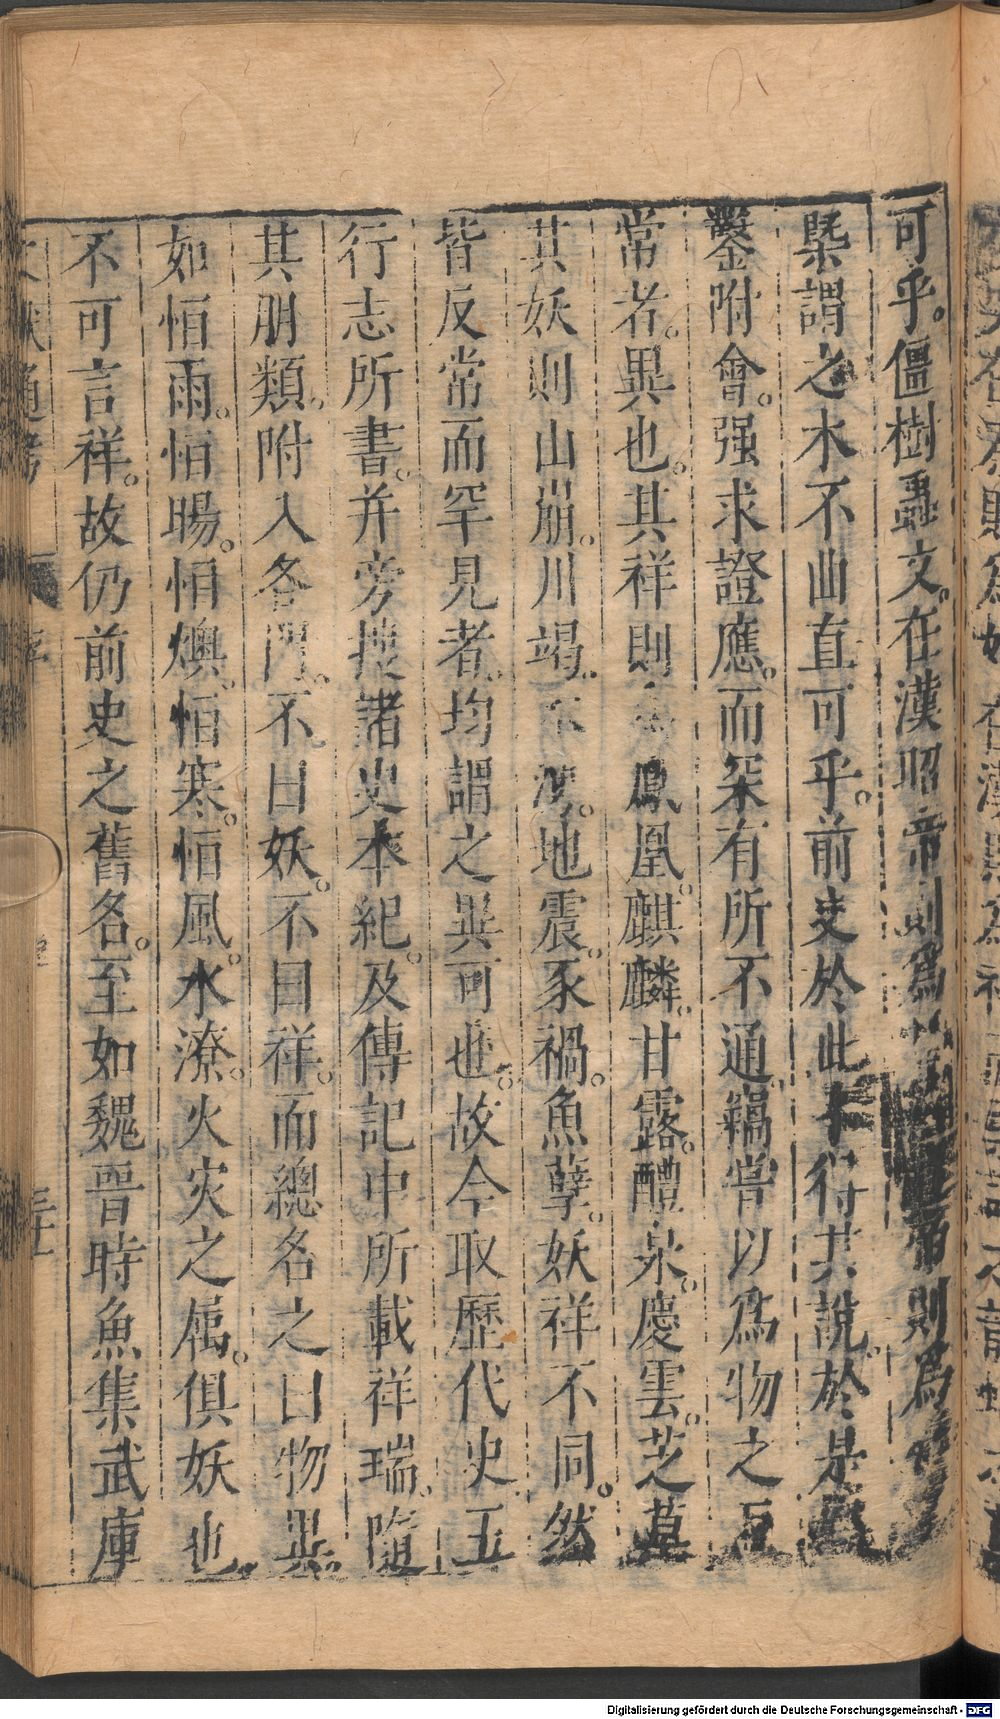 可乎。僵樹蟲文。在漢昭帝則爲 則爲
槩謂之木不曲直可乎。前史於此不得其說。於是
鑿附會。强求證應。而罙有所不通。竊嘗以爲物之反
常者。異也。其祥則 鳳凰。麒麟。甘露。醴泉。慶雲。芝草
其妖則山崩。川竭。水湧。地震。豕禍。魚孽。妖祥不同。然
皆反常而罕見者。均謂之異可也。故今取歷代史五
行志所書。并旁搜諸史本紀。及傳記中所載祥瑞。隨
其朋類。附入各門。不曰妖。不曰祥。而總名之曰物異。
如恒雨。恒暘。恒燠。恒寒。恒風。水潦。火灾之屬。俱妖也。
不可言祥。故仍前史之舊名。至如魏晉時魚集武庫
文獻通考 序 三十
Digitalisierung gefördert durch die Deutsche Forschungsgemeinschaft - DFG